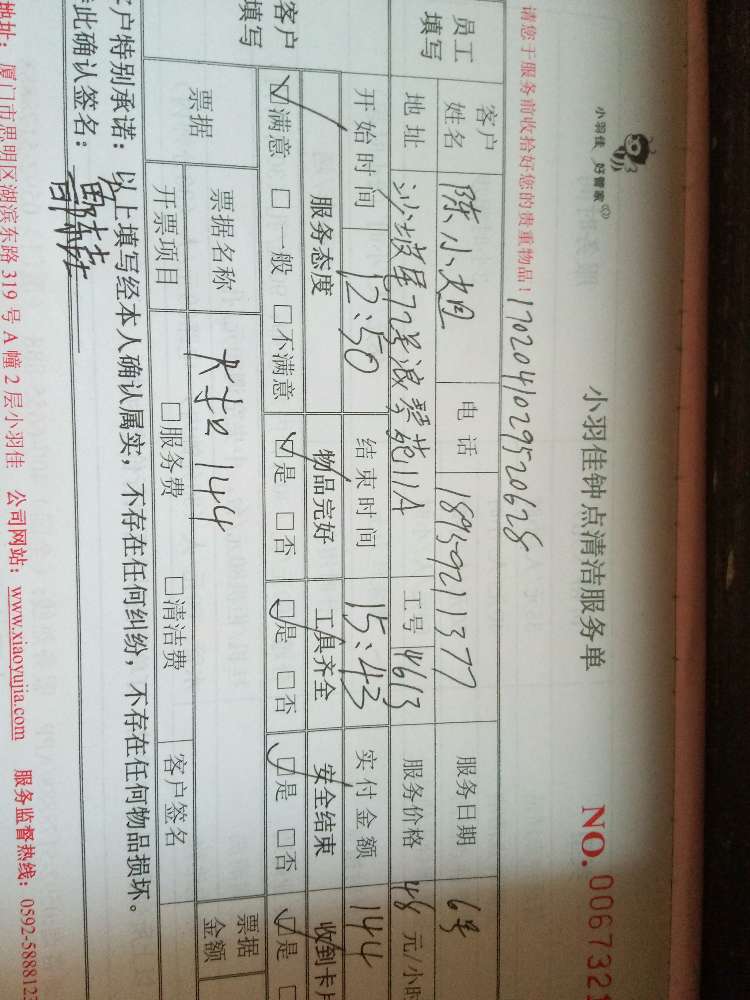 小羽佳 好管家
小羽佳钟点清洁服务单
NO. 0067321
请您于服务前收拾好您的贵重物品！ 1702041029520628
员工填写 客户姓名 陈小姐 电话 18959211377 服务日期 6号
地址 沙坡尾72号浪琴苑11A 工号 4613 服务价格 48 元/小时
开始时间 12:50 结束时间 15:43 实付金额 144
客户填写 服务态度 物品完好 工具齐全 安全结束 收到卡片
☑满意 □一般 □不满意 ☑是 □否 ☑是 □否 ☑是 □否 ☑是
票据 票据名称 144 票据金额
开票项目 □服务费 □清洁费 客户签名
客户特别承诺：以上填写经本人确认属实，不存在任何纠纷，不存在任何物品损坏。
此确认签名：
地址：厦门市思明区湖滨东路 319 号 A 幢 2 层小羽佳 公司网站：www.xiaoyujia.com 服务监督热线：0592-5888123